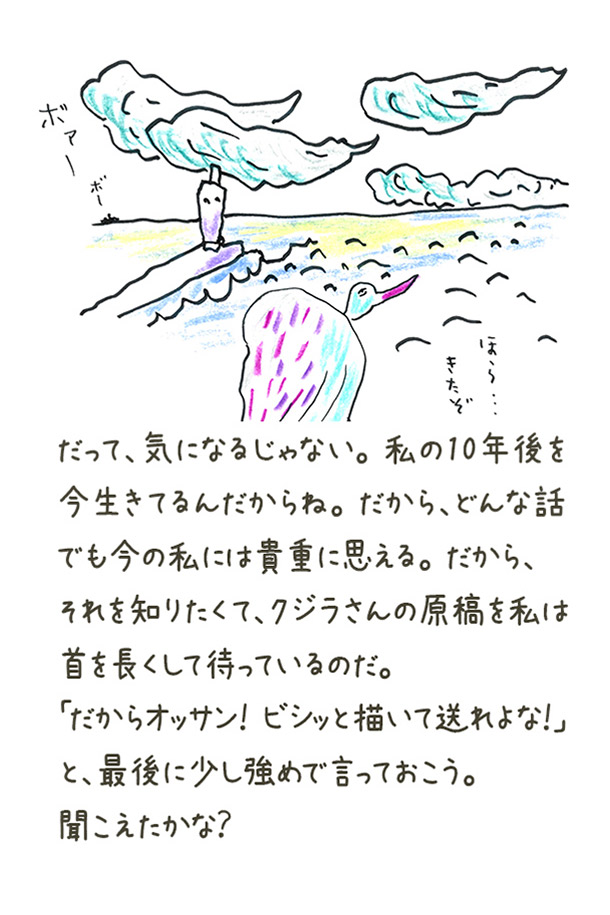 ボァー
ボー
ほら…
きたぞ
だって、気になるじゃない。私の10年後を
今生きてるんだからね。だから、どんな話
でも今の私には貴重に思える。だから、
それを知りたくて、クジラさんの原稿を私は
首を長くして待っているのだ。
「だからオッサン！ビシッと描いて送れよな！」
と、最後に少し強めで言っておこう。
聞こえたかな？